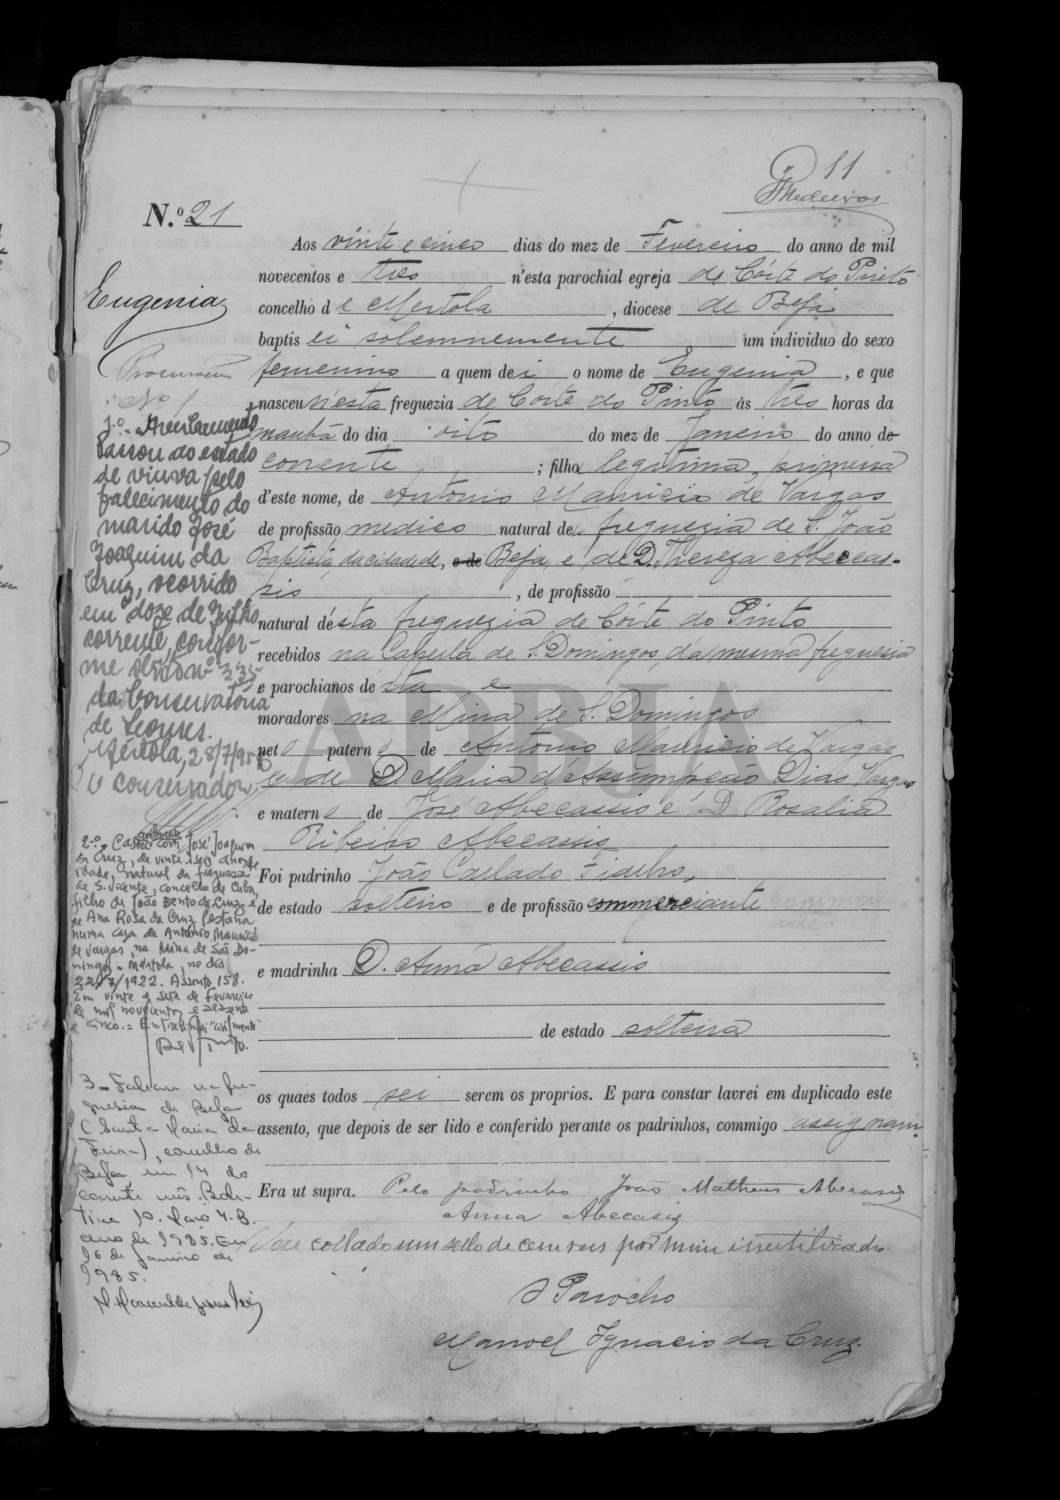 11
Medeiros
N.º 21
Eugenia
Aos vinte e cinco dias do mez de Fevereiro do anno de mil
novecentos e tres n'esta parochial egreja de Côrte do Pinto
concelho de Mertola, diocese de Beja
baptisei solemnemente um individuo do sexo
femenino a quem dei o nome de Eugenia, e que
nasceu n'esta freguezia de Côrte do Pinto ás tres horas da
manhã do dia oito do mez de Janeiro do anno do
corrente; filha legitima, primeira
d'este nome, de Antonio Mauricio de Vargas
de profissão medico natural de freguezia de S. João
Baptista, da cidade de, e de Beja, e de D. Thereza Abecas-
sis, de profissão
natural d'esta freguezia de Côrte do Pinto
recebidos na Capella de S. Domingos, da mesma freguesia
e parochianos d'esta e
moradores na Mina de S. Domingos
neta paterna de Antonio Mauricio de Vargas
e de D. Maria d'Assumpção Dias Vargas
e materna de José Abecassis e D. Rosalia
Ribeiro Abecassis
Foi padrinho João Callado Fialho,
de estado solteiro e de profissão commerciante
e madrinha D. Anna Abecassis
de estado solteira
os quaes todos sei serem os proprios. E para constar lavrei em duplicado este
assento, que depois de ser lido e conferido perante os padrinhos, commigo assignam.
Era ut supra. Pelo padrinho: João Matheus Abecasis
Anna Abecasis
Vae collado um sello de cem reis por mim inutilizado.
O Parocho
Manoel Ignacio da Cruz.
Nº 1
1.º Averbamento
Passou ao estado
de viuva pelo
falecimento do
marido José
Joaquim da
Cruz, ocorrido
em doze de Julho
corrente, confor-
me assento nº 335
da Conservatória
de Loures.
Mértola, 28/7/956
O conservador,
2.º - Casou catolicamente com José Joaquim
da Cruz, de vinte e seis anos de
idade, natural da freguesia
de S. Vicente, concelho de Cuba,
filho de João Bento da Cruz e
de Ana Rosa da Cruz Pestana
numa casa de António Mauricio
de Vargas, na Mina de São Do-
mingos - Mértola, no dia
22/7/1922. Assento 158.
Em vinte e sete de Fevereiro
de mil novecentos e sessenta
e cinco. = Entrelinhei "civilmente"
3 - Faleceu na fre-
guesia de Beja
(Santa Maria da
Feira), concelho de
Beja em 14 do
corrente mês. Bole-
tim 10. Maço Y.B.
ano de 1985. Em
16 de Janeiro de
1985.
ADBJA